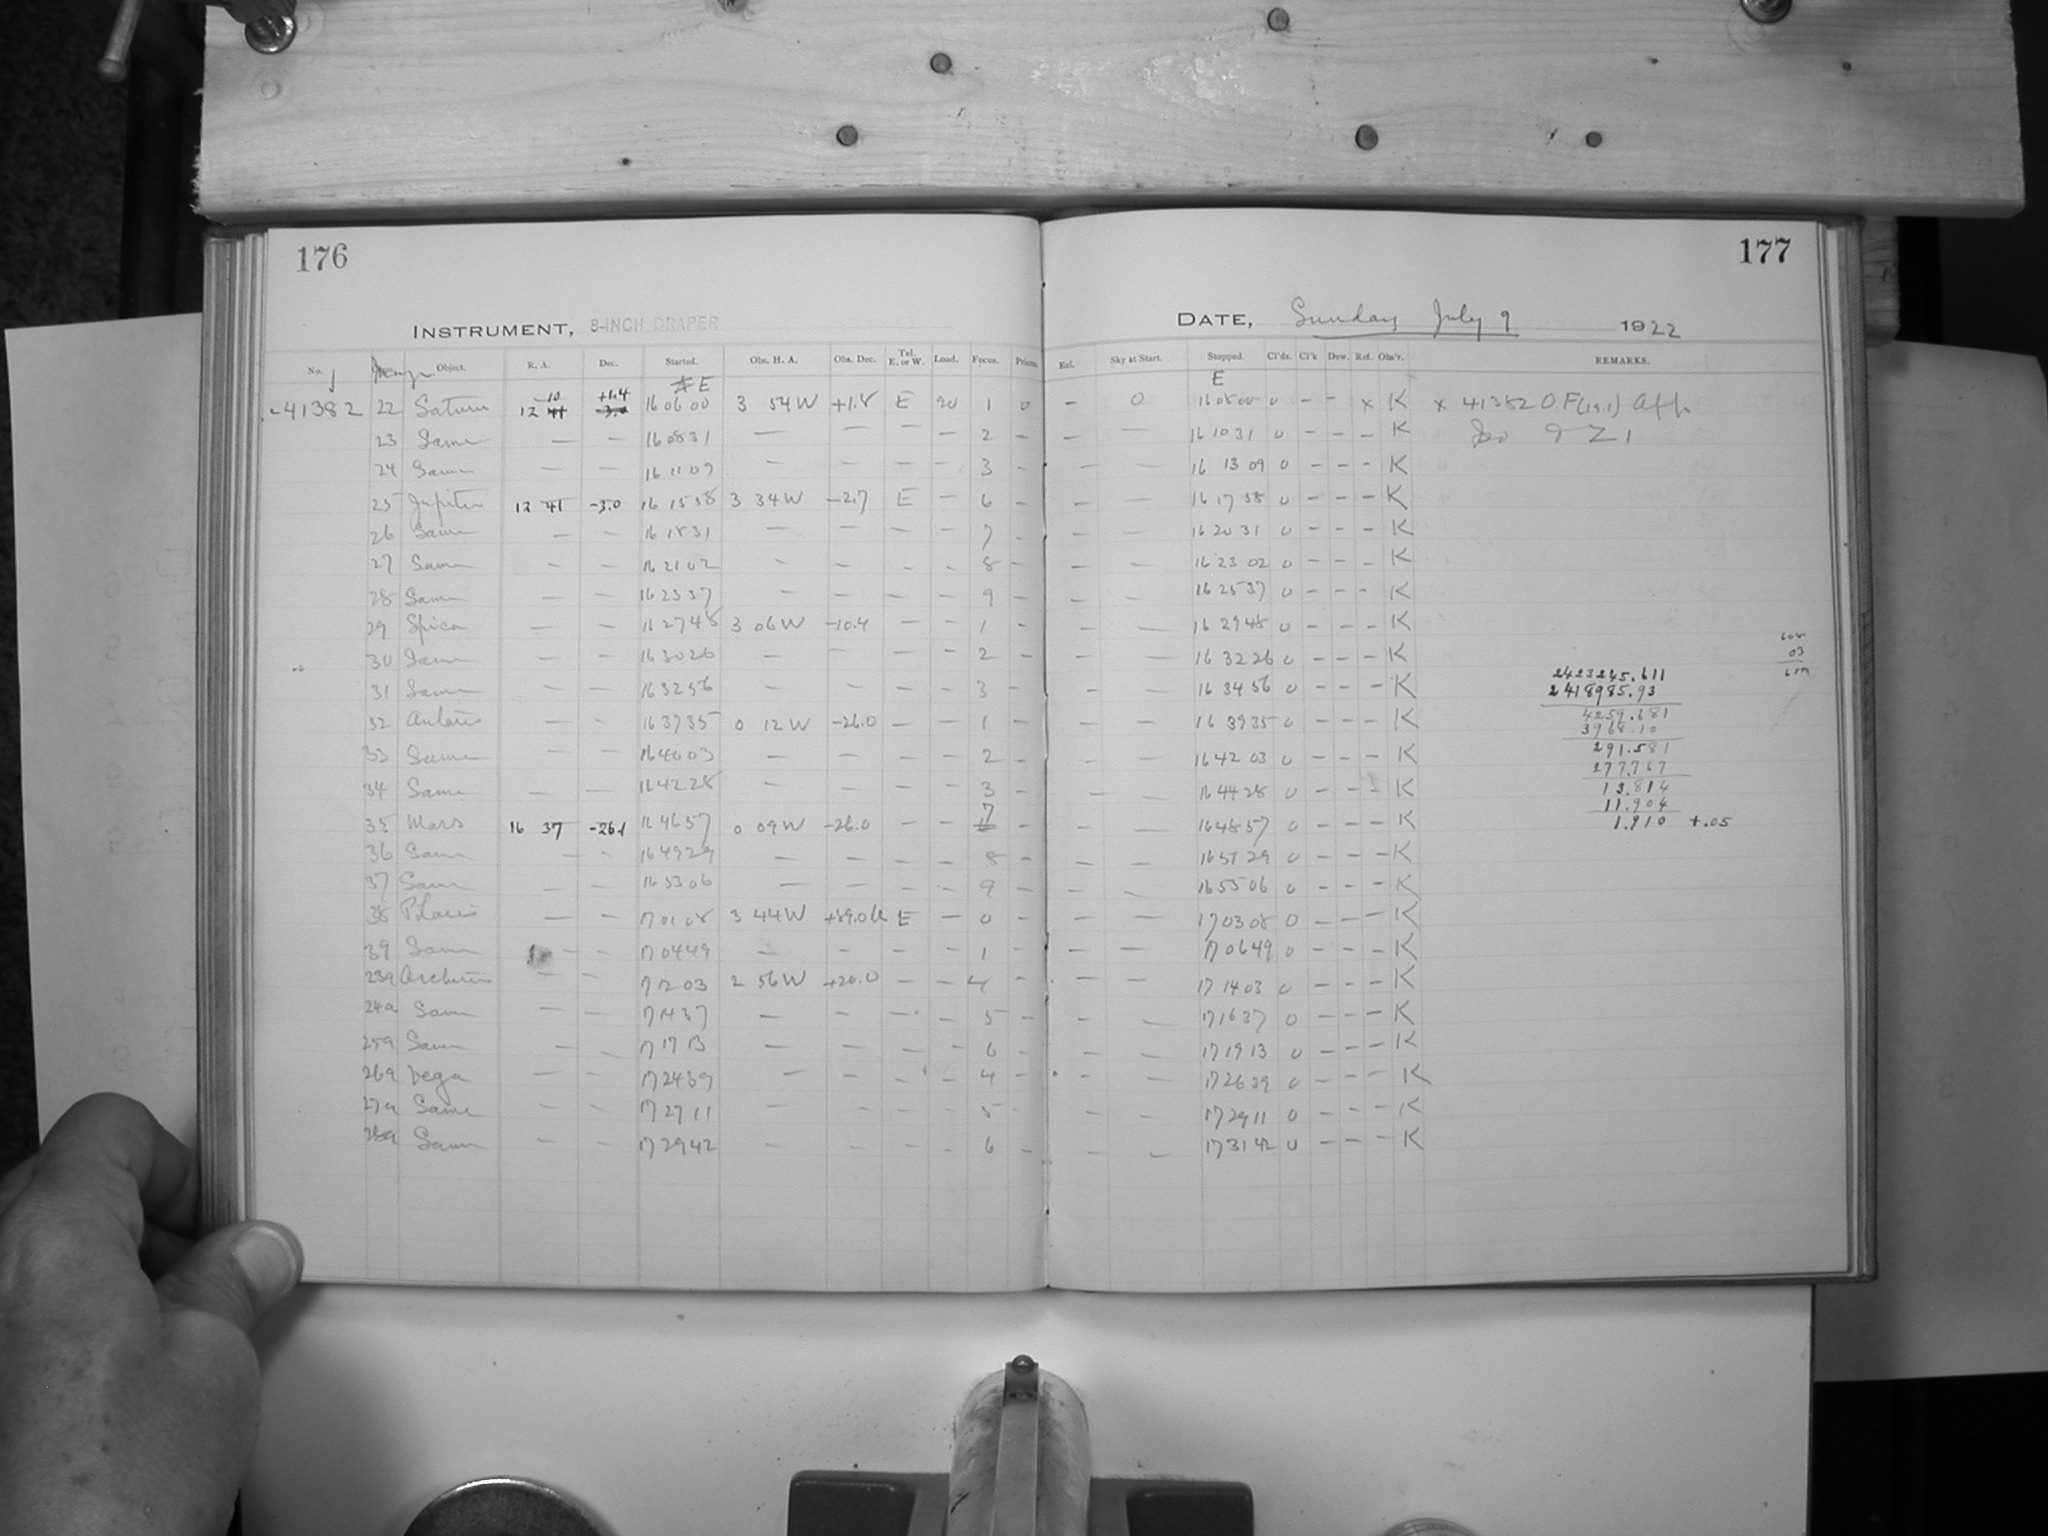 176
177
INSTRUMENT, 8-INCH DRAPER
DATE, Sunday July 9 1922
No. Image Object. R. A. Dec. Started. Obs. H. A. Obs. Dec. Tel. E. or W. Load. Focus. Prisms. Eul. Sky at Start. Stopped. Cl'ds. Cl'k Dew. Ref. Obs'r. REMARKS.
10 +1.4 E E
41382 22 Saturn 12 16 06 00 3 54 W +1.8 E 20 1 0 – 0 16 08 00 0 – – x K x 41382
23 Same – – 16 08 31 – – – – 2 – – – 16 10 31 0 – – – K
24 Same – – 16 11 09 – – – – 3 – – – 16 13 09 0 – – – K
25 Jupiter 12 41 -3.0 16 15 58 3 34 W -2.7 E – 6 – – – 16 17 58 0 – – – K
26 Same – – 16 18 31 – – – – 7 – – – 16 20 31 0 – – – K
27 Same – – 16 21 02 – – – – 8 – – – 16 23 02 0 – – – K
28 Same – – 16 23 37 – – – – 9 – – – 16 25 37 0 – – – K
29 Spica – – 16 27 48 3 06 W -10.4 – – 1 – – – 16 29 48 0 – – – K
30 Same – – 16 30 26 – – – – 2 – – – 16 32 26 0 – – – K
31 Same – – 16 32 56 – – – – 3 – – – 16 34 56 0 – – – K
32 Antares – – 16 37 35 0 12 W -26.0 – – 1 – – – 16 39 35 0 – – – K
33 Same – – 16 40 03 – – – – 2 – – – 16 42 03 0 – – – K
34 Same – – 16 42 28 – – – – 3 – – – 16 44 28 0 – – – K
35 Mars 16 37 -26.1 16 46 57 0 09 W -26.0 – – 7 – – – 16 48 57 0 – – – K
36 Same – – 16 49 29 – – – – 8 – – – 16 51 29 0 – – – K
37 Same – – 16 53 06 – – – – 9 – – – 16 55 06 0 – – – K
38 Polaris – – 17 01 08 3 44 W E – 0 – – – 17 03 08 0 – – – K
39 Same – – 17 04 49 – – – – 1 – – – 17 06 49 0 – – – K
23a Arcturus – – 17 12 03 2 56 W +20.0 – – 4 – – – 17 14 03 0 – – – K
24a Same – – 17 14 37 – – – – 5 – – – 17 16 37 0 – – – K
25a Same – – 17 17 13 – – – – 6 – – – 17 19 13 0 – – – K
26a Vega – – 17 24 39 – – – – 4 – – – 17 26 39 0 – – – K
27a Same – – 17 27 11 – – – – 5 – – – 17 29 11 0 – – – K
28a Same – – 17 29 42 – – – – 6 – – – 17 31 42 0 – – – K
2423245.611
2418985.93
4259.681
3968.10
291.581
277.767
13.814
11.904
1.910 +.05
03